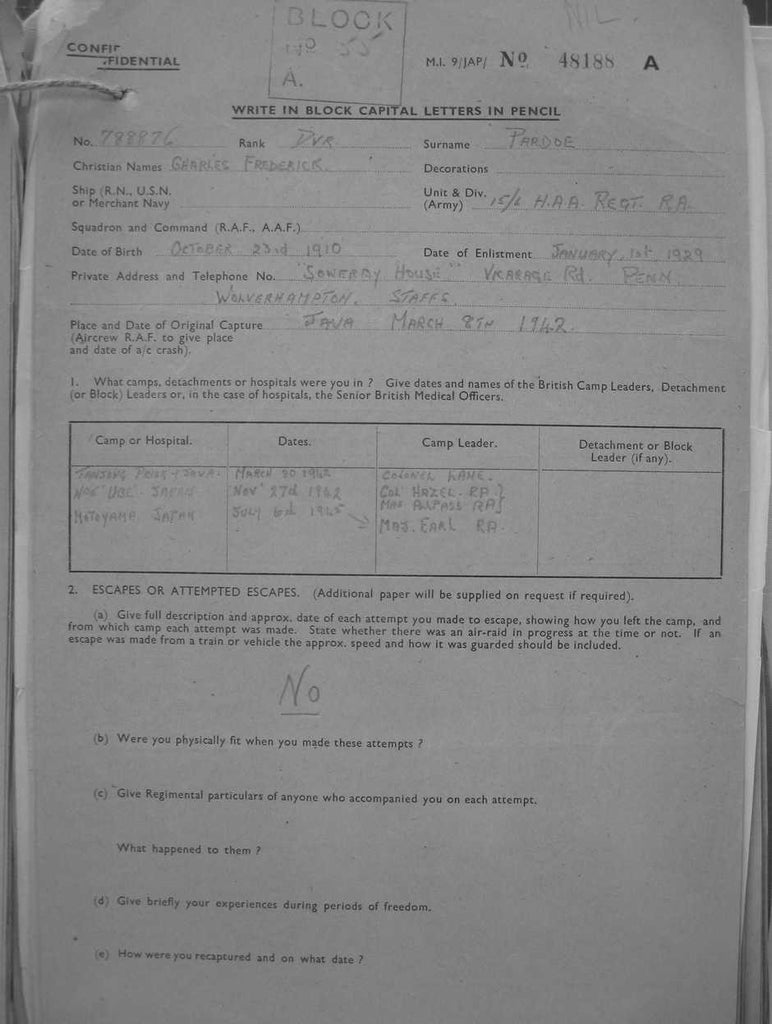 BLOCK
Nº 55
A.
NIL.
CONFI
FIDENTIAL
M.I. 9/JAP/ Nº 48188 A
WRITE IN BLOCK CAPITAL LETTERS IN PENCIL
No. 788876 Rank DVR Surname PARDOE
Christian Names CHARLES FREDERICK Decorations
Ship (R.N., U.S.N. or Merchant Navy
Unit & Div. (Army) 15/6 H.A.A. REGT. RA.
Squadron and Command (R.A.F., A.A.F.)
Date of Birth OCTOBER 23rd 1910 Date of Enlistment JANUARY 1st 1929
Private Address and Telephone No. "SOWERBY HOUSE" VICARAGE Rd. PENN
WOLVERHAMPTON. STAFFS.
Place and Date of Original Capture JAVA MARCH 8TH 1942
(Aircrew R.A.F. to give place
and date of a/c crash).
1. What camps, detachments or hospitals were you in ? Give dates and names of the British Camp Leaders, Detachment
(or Block) Leaders or, in the case of hospitals, the Senior British Medical Officers.
Camp or Hospital. Dates. Camp Leader. Detachment or Block
Leader (if any).
TANJONG PRIOK JAVA. MARCH 20 1942 COLONEL LANE.
UBE. JAPAN NOV 27d 1942 COL HAZEL. RA }
MAJ ALLPASS RA }
MOTOYAMA JAPAN JULY 1945 MAJ. EARL RA.
2. ESCAPES OR ATTEMPTED ESCAPES. (Additional paper will be supplied on request if required).
(a) Give full description and approx. date of each attempt you made to escape, showing how you left the camp, and
from which camp each attempt was made. State whether there was an air-raid in progress at the time or not. If an
escape was made from a train or vehicle the approx. speed and how it was guarded should be included.
No
(b) Were you physically fit when you made these attempts ?
(c) Give Regimental particulars of anyone who accompanied you on each attempt.
What happened to them ?
(d) Give briefly your experiences during periods of freedom.
(e) How were you recaptured and on what date ?